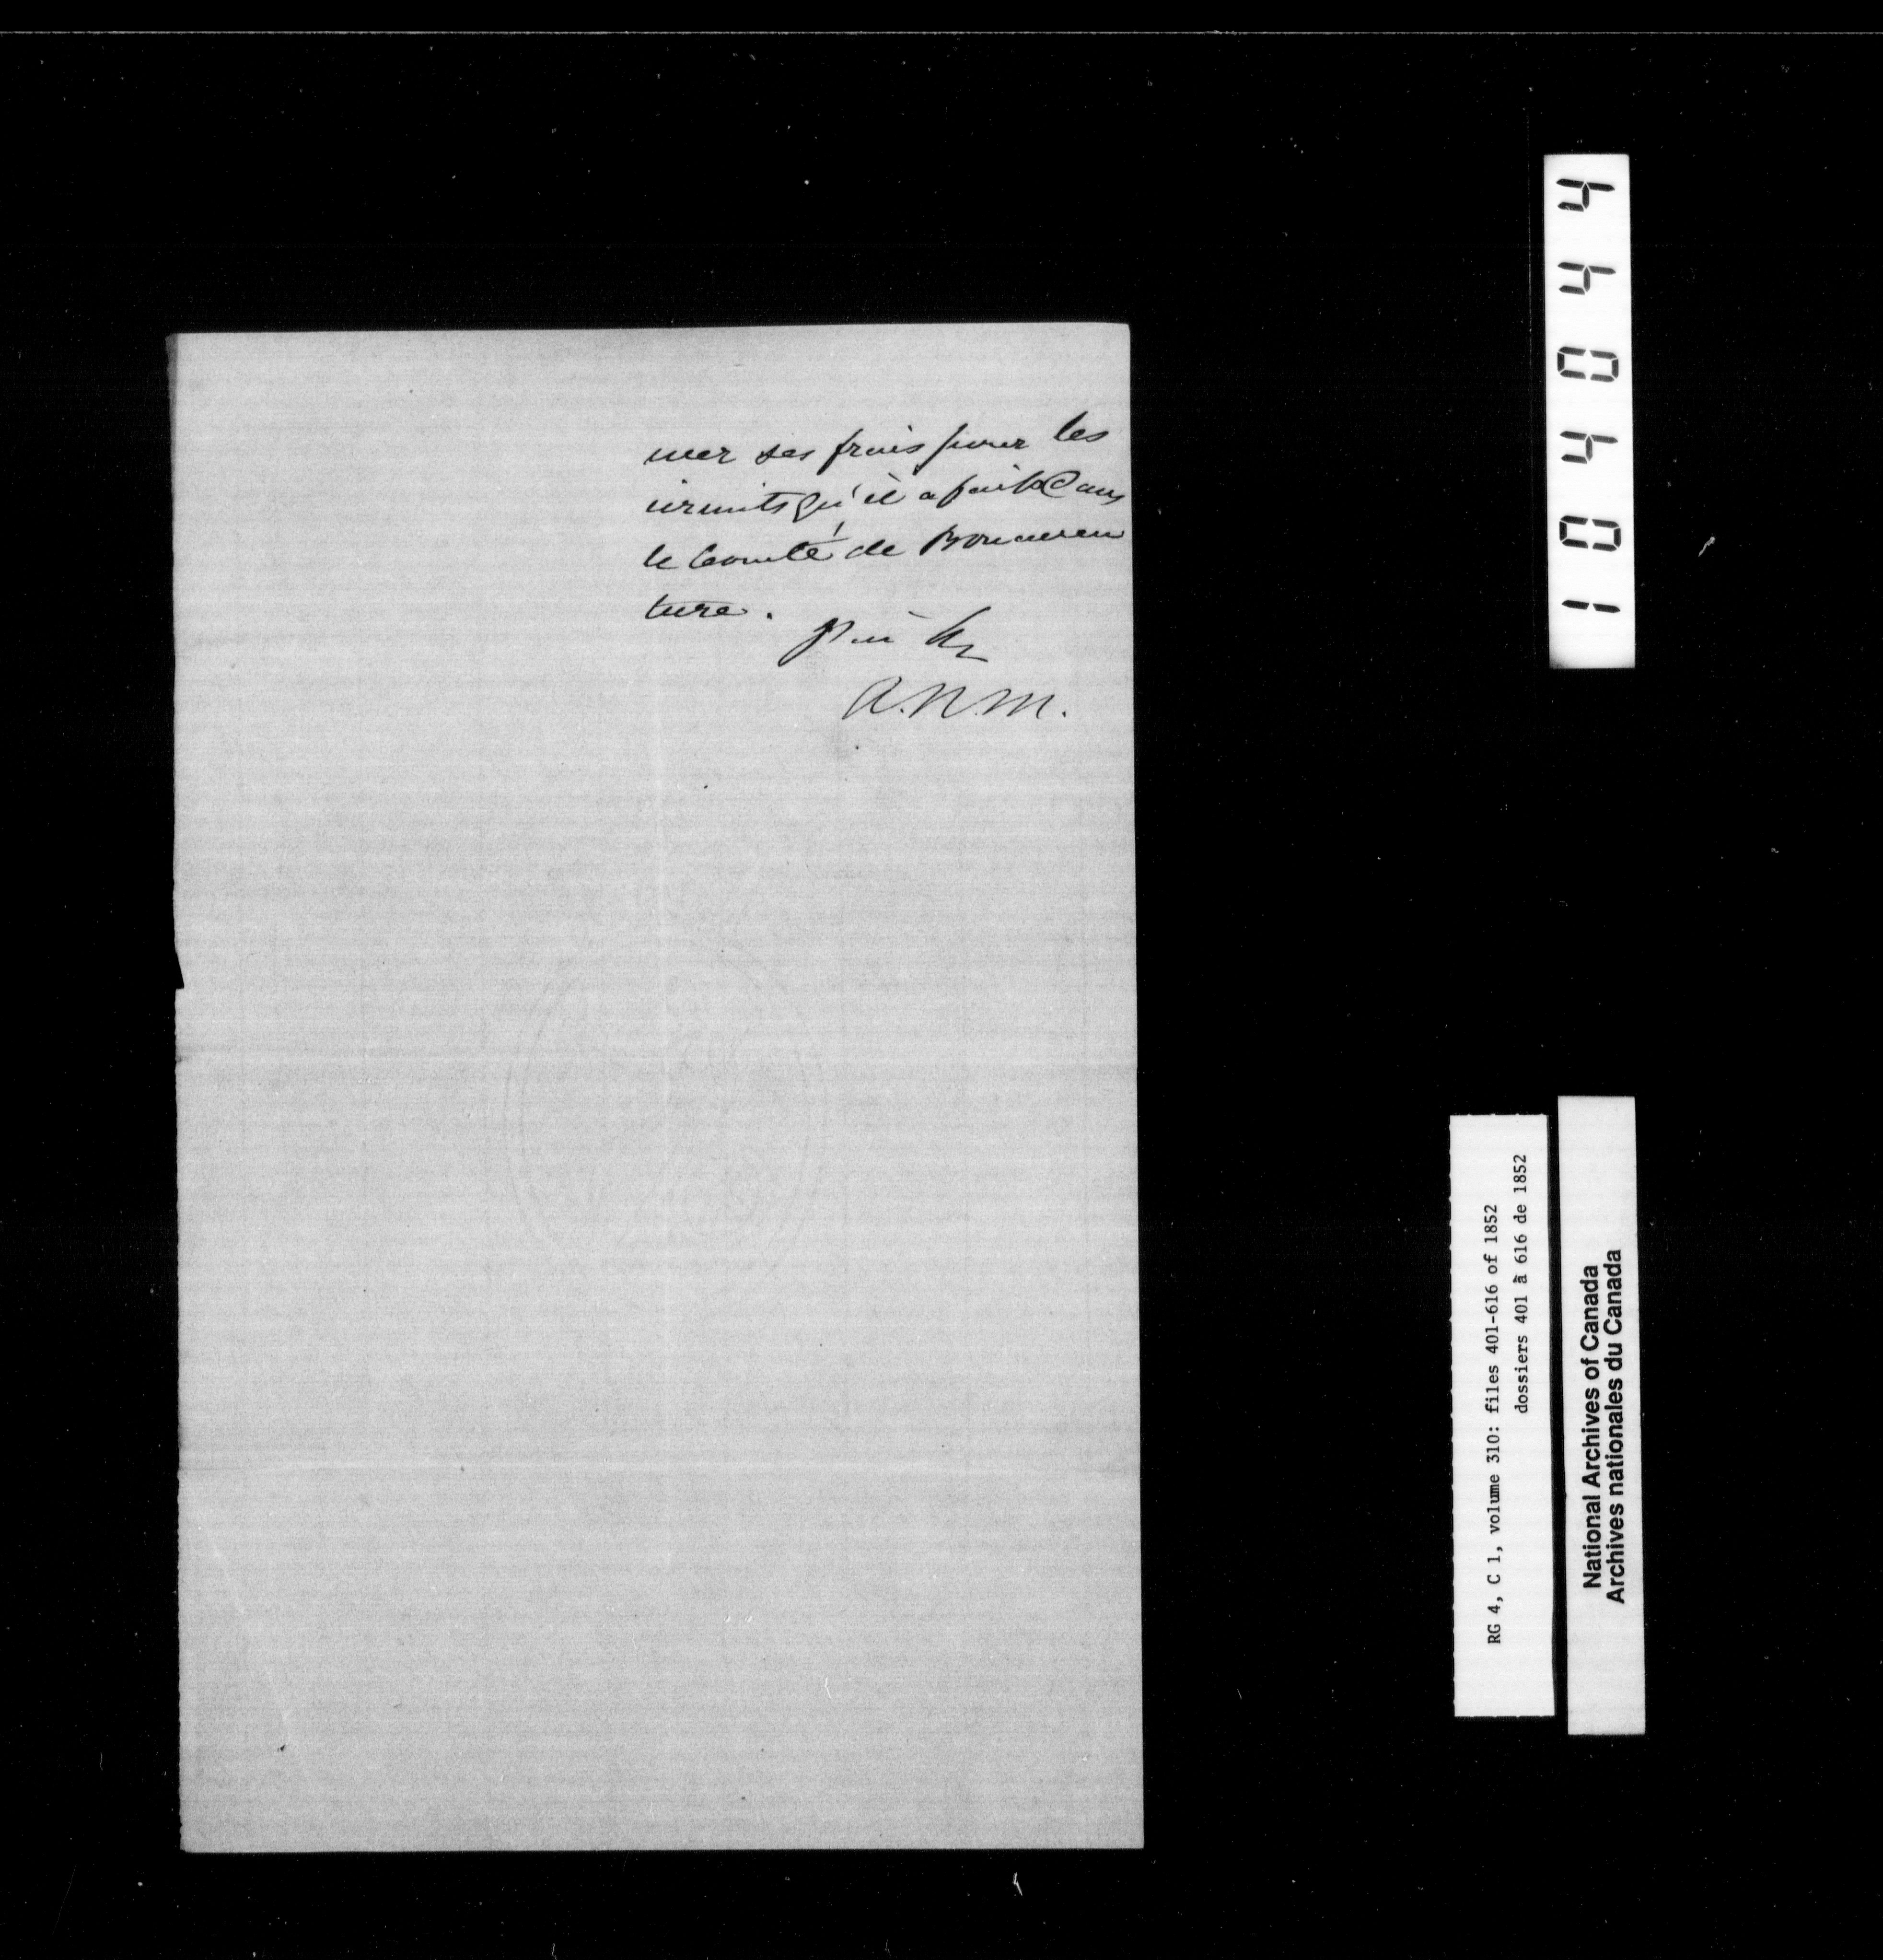 mer ses frais pour les
circuits qu'il a faits dans
le Comté de Bonaven
ture.
A.N.M.
104044
RG 4, C 1, volume 310: files 401-616 of 1852
dossiers 401 à 616 de 1852
National Archives of Canada
Archives nationales du Canada